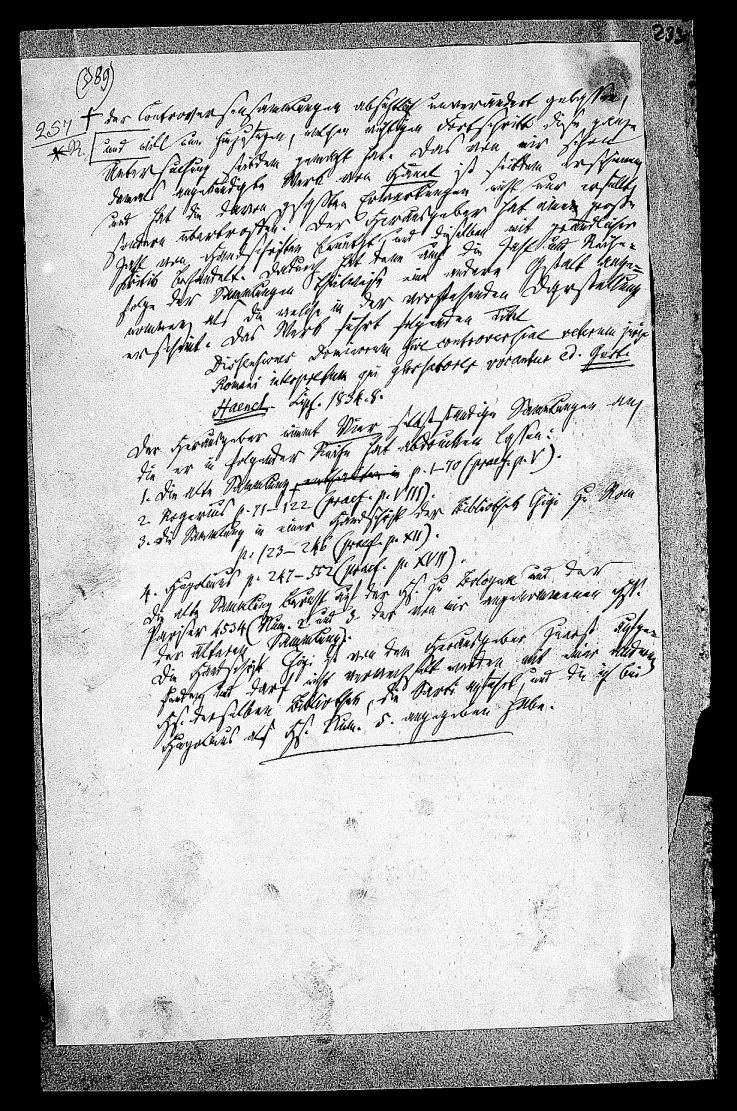 (389)
257 † der Controversensammlungen absichtlich unverändert gelassen,
*R. und will nur hinzusetzen, welchen wichtigen Fortschritt diese ganze
Untersuchung seitdem gemacht hat. Das von mir schon
damals angekündigte Werk von Hänel ist seitdem erschienen
und hat die davon gefaßten Erwartungen nicht nur erfüllt,
sondern übertroffen. Der Herausgeber hat eine große
Zahl von Handschriften benutzt, und dieselben mit gründlicher
Kritik behandelt. Dadurch hat denn auch die Zahl und Reihe-
folge der Sammlungen theilweise eine andere Gestalt ange-
nommen, als die welche in der vorstehenden Darstellung
erscheint. Das Werk führt folgenden Titel
Dissensiones Dominorum sive controversiae veterum juris
Romani interpretum qui glossatores vocantur ed. Gust.
Haenel. Lips. 1834. 8.
Der Herausgeber nimmt Vier selbstständige Sammlungen an,
die er in folgender Reihe hat abdrucken lassen:
1. Die alte Sammlung p. 1-70 (praef. p. V).
2. Rogerius p. 71-122 (praef. p. VIII).
3. Die Sammlung in einer Handschrift der Bibliothek Chigi zu Rom
p. 123-246 (praef. p. XII).
4. Hugolinus p. 247-552 (praef. p. XVII).
Die alte Sammlung beruht auf der Hs. zu Bologna und der
Pariser 4534 (Num. 2. und 3. der von mir angenommenen Hss.
der älteren Sammlung).
Die Handschrift Chigi ist von dem Herausgeber zuerst aufge-
funden, und darf nicht verwechselt werden mit einer andern
Hs. derselben Bibliothek, die Sarti anführt, und die ich bei
Hugolinus als Hs. Num. 5. angegeben habe.